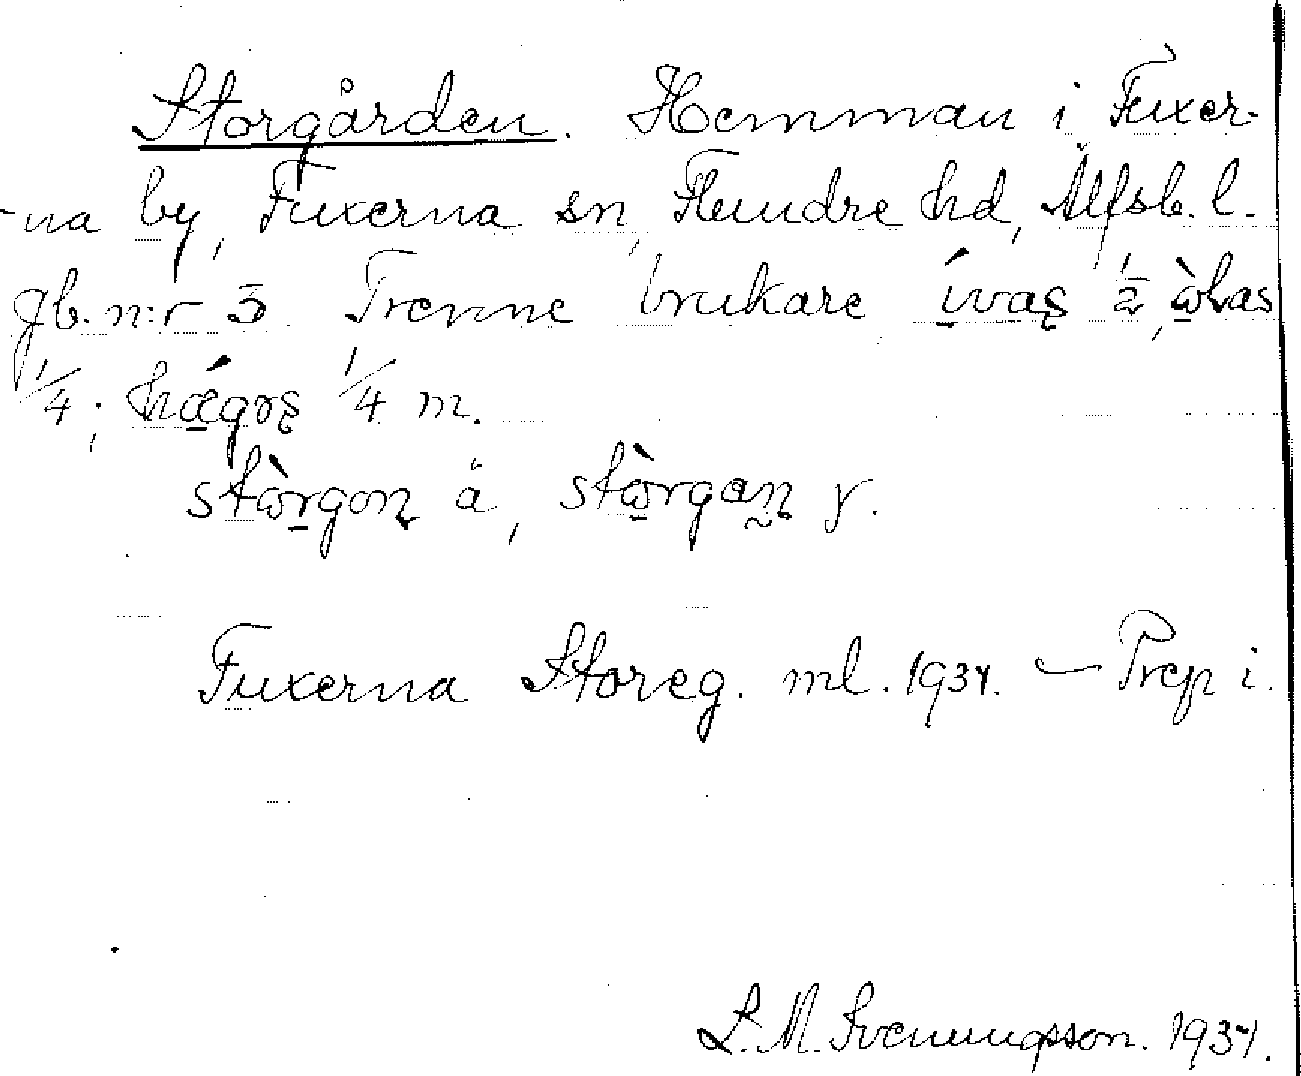 Storgården. Hemman i Fuxer-
-na by, Fuxerna sn, Flundre hd, Älfsb. l.
gb. n:r 3. Trenne brukare ívas 1/2, òlas
1/4; hǽgrs 1/4 m.
stòrgon ä, stòrgan y.
Fuxerna Storeg. ml. 1934. – Prep i.
S. M. Svenungsson. 1934.